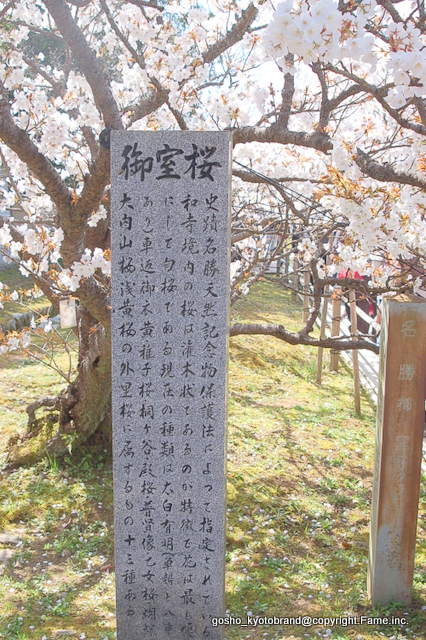 御室桜
史蹟名勝天然記念物保護法によって指定されている
和寺境内の桜は灌木状であるのが特徴で花は最も
にして匂桜である現在の種類は太白有明
あり車返御衣黄稚子桜桐ヶ谷殿桜普賢像乙女桜
大内山桜浅黄桜の外里桜に属するもの十三種ある
名勝御室
gosho_kyotobrand@copyright.Fame.inc.